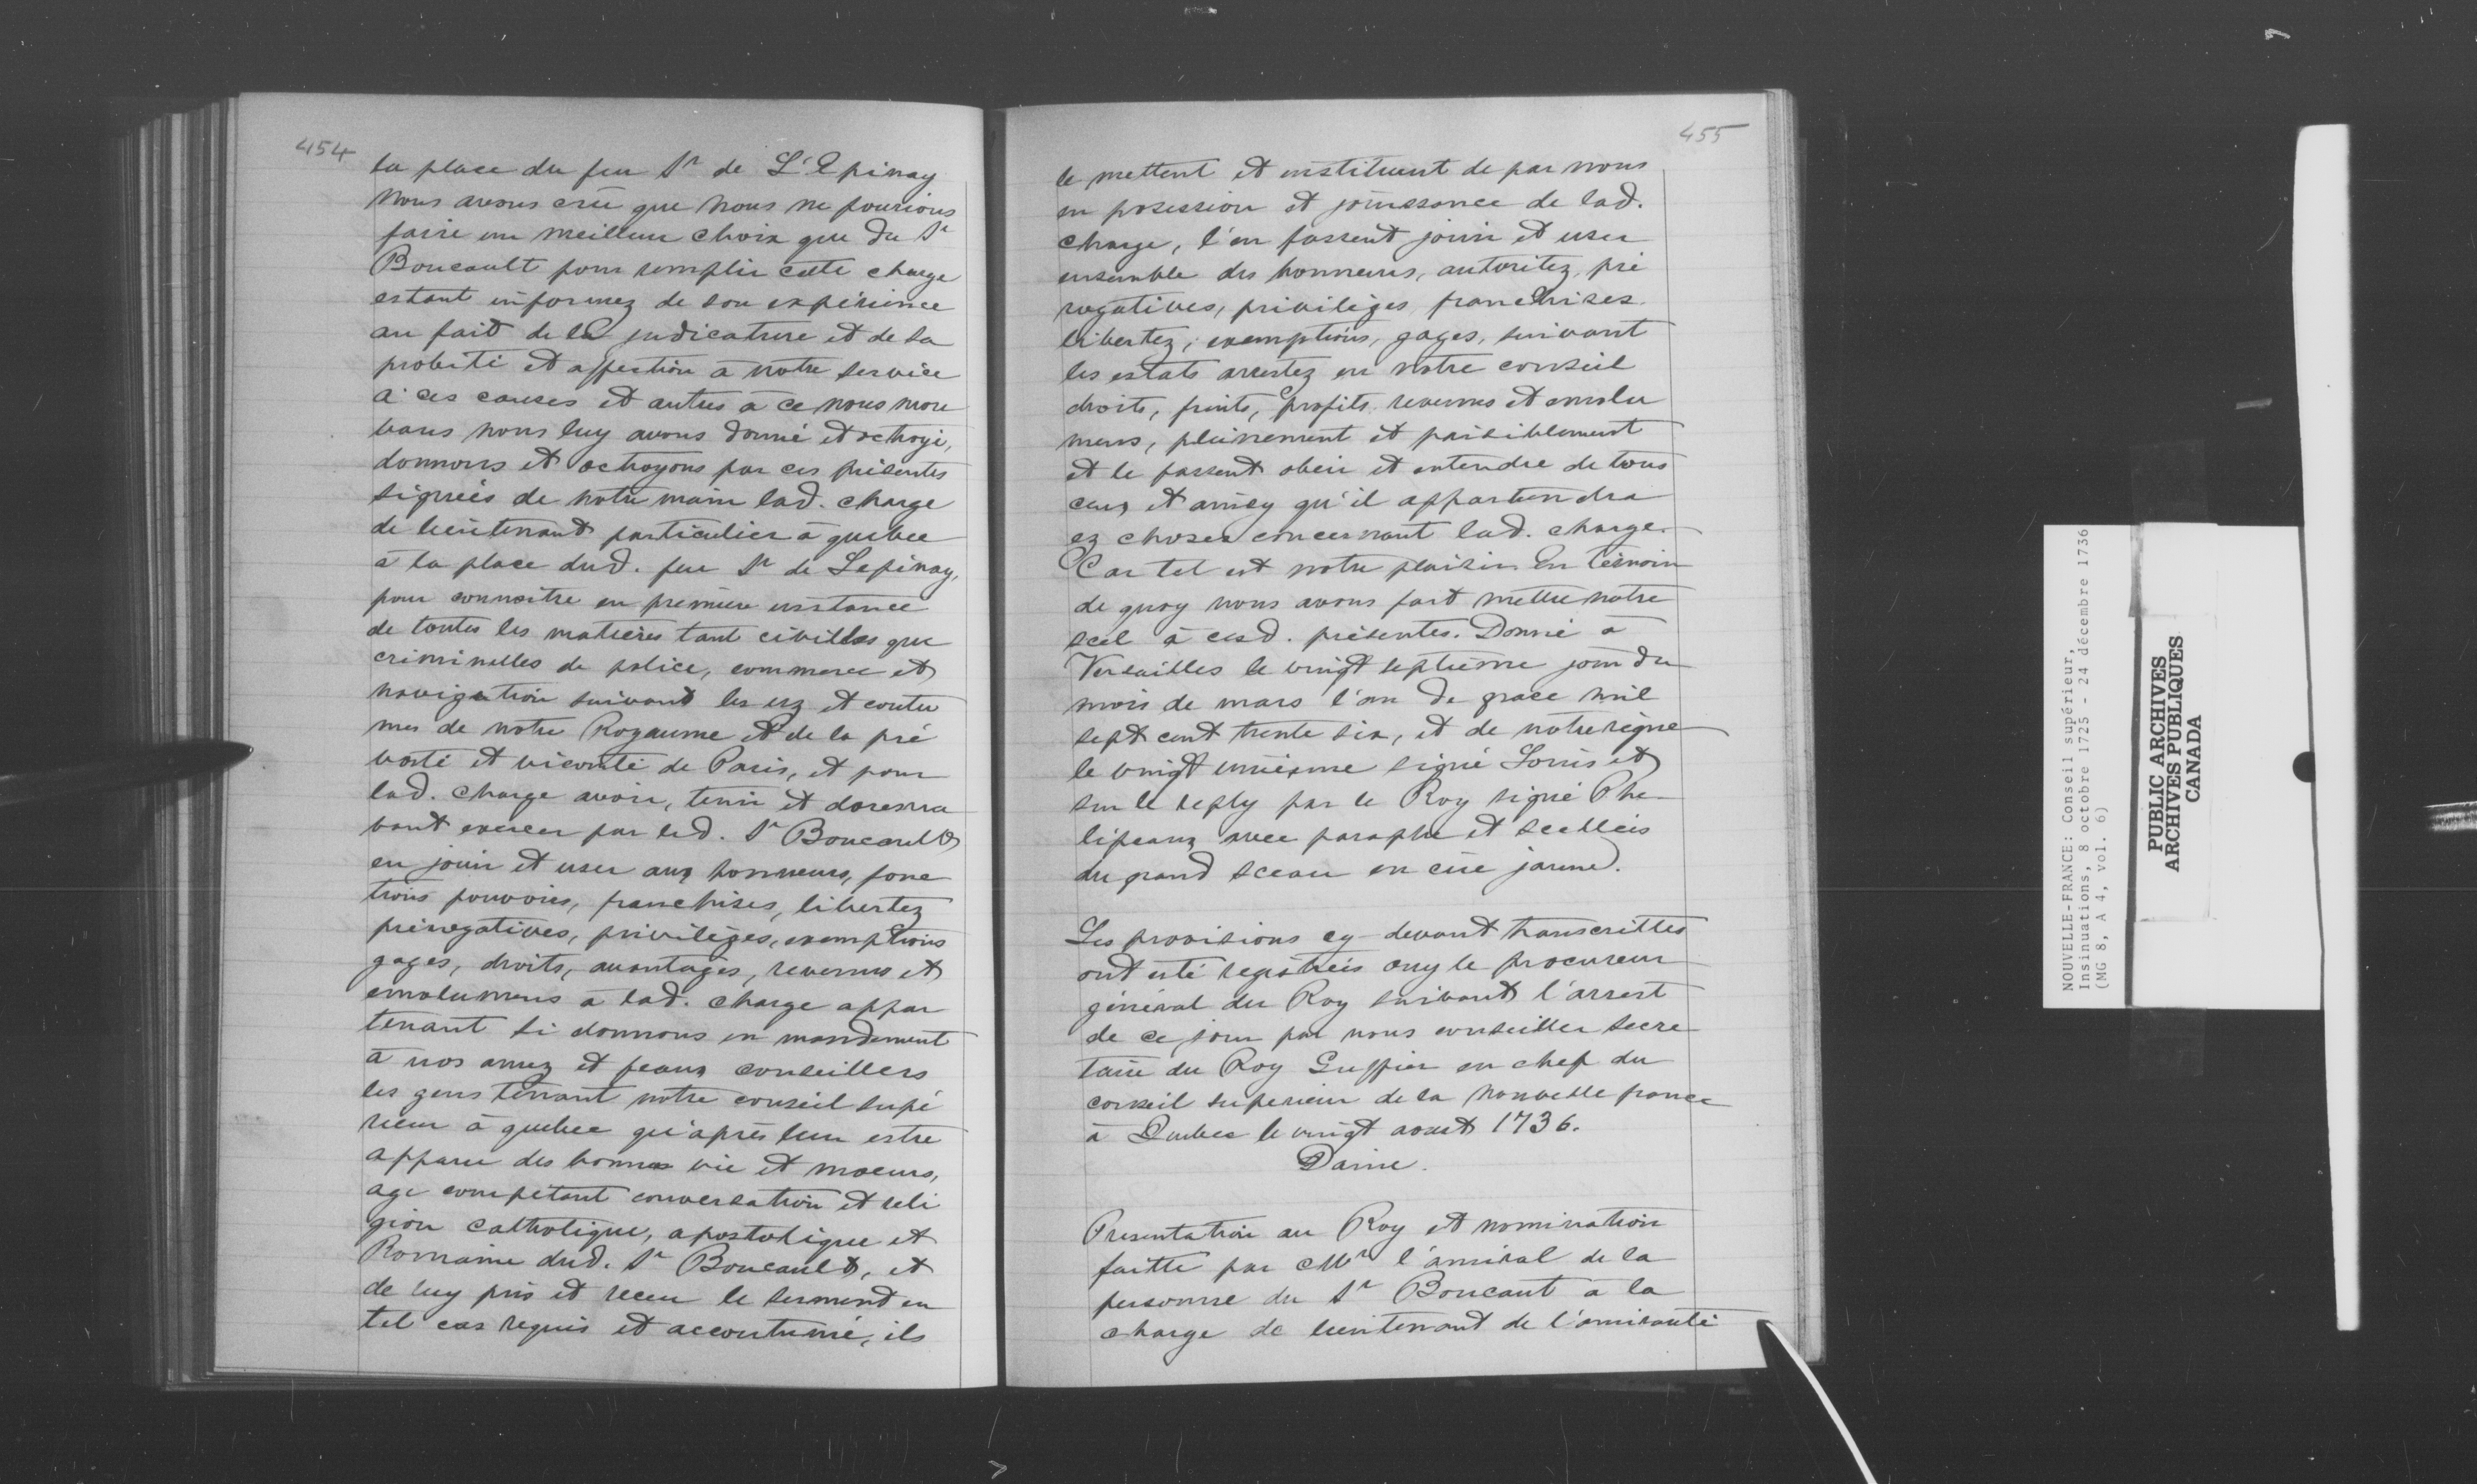 454
la place du feu Sr de L'Epinay
Nous avons crû que nous ne pourions
faire un meilleur choix que du Sr
Boucault pour remplir cette charge
estant informez de son expérience
au fait de la judicature et de sa
probité et affection à notre service
à ces causes et autres à ce nous mou
vans nous luy avons donné et octroyé,
donnons et octroyons par ces présentes
signées de notre main lad. charge
de lieutenant particulier à quebec
à la place dud. feu Sr de Lepinay,
pour connoitre en premiere instance
de toutes les matières tant civilles que
criminelles de police, commerce et
navigation suivant les uz et coutu
mes de notre Royaume et de la pré
vosté et vicomté de Paris, et pour
lad. charge avoir, tenir et doresna
vant exercer par led. Sr Boucault
en jouir et user aux honneurs, fonc
tions pouvoirs, franchises, libertez
prérogatives, privilèges, exemptions
gages, droits, avantages, revenus et
emolumens à lad. charge appar
tenant si donnons en mandement
à nos amez et feaux conseillers
les gens tenant notre conseil supé
rieur à quebec qu'après leur estre
apparu des bonnes vie et moeurs,
age compétant conversation et reli
gion catholique, apostolique et
Romaine dud. Sr Boucault, et
de luy pris et receu le serment en
tel cas requis et accoutumé, ils
455
le mettent et instituent de par nous
en posession et jouissance de lad.
charge, l'en fassent jouir et user
ensemble des honneurs, autoritez, pré
rogatives, privilèges franchises
libertez, exemptions, gages, suivant
les estats arrestez en notre conseil
droits, fruits, profits revenus et emolu
mens, pleinement et paisiblement
et le fassent obeir et entendre de tous
ceux et ainsy qu'il appartiendra
ez choses concernant lad. charge.
Car tel est notre plaisir En témoin
de quoy nous avons fait mettre notre
scel à cesd. présentes. Donné à
Versailles le vingt septième jour du
mois de mars l'an de grace mil
sept cent trente six, et de notre règne
le vingt unième signé Louis et
sur le reply par le Roy signé Phe
lipeaux avec paraphe et scellées
du grand sceau en cire jaune.
Les provisions cy-devant transcrittes
ont esté registrées ouy le procureur
général du Roy suivant l'arrest
de ce jour par nous conseiller secre
taire du Roy Greffier en chef du
conseil superieur de la nouvelle france
à Quebec le vingt aoust 1736.
Daine.
Presentation au Roy et nomination
faitte par Mr l'amiral de la
personne du Sr Boucaut à la
charge de lieutenant de l'amirauté
NOUVELLE-FRANCE: Conseil supérieur,
Insinuations, 8 octobre 1725 - 24 décembre 1736
(MG 8, A 4, vol. 6)
PUBLIC ARCHIVES
ARCHIVES PUBLIQUES
CANADA